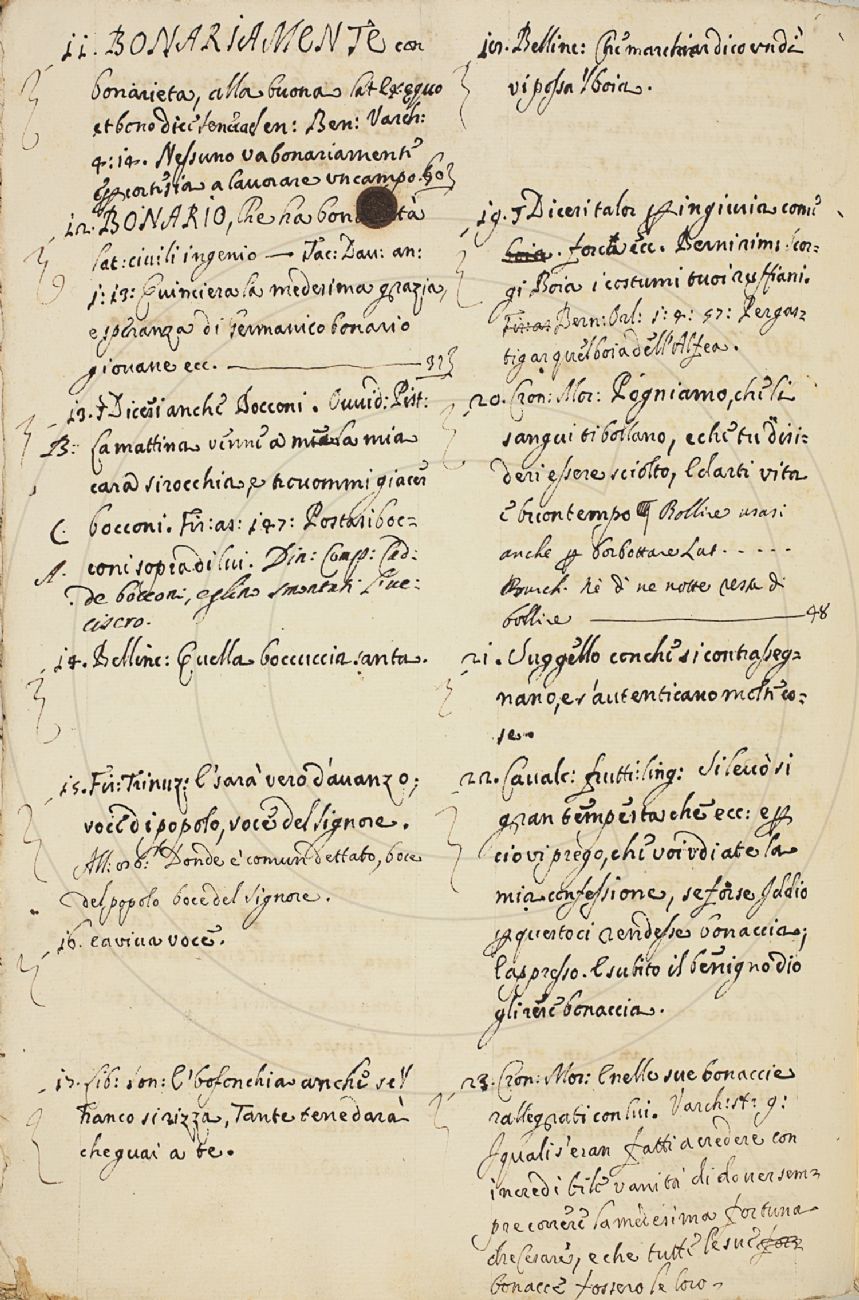 11. BONARIAMENTE con
bonarieta, alla buona lat. ex equo
et bono dicesen: Ben: Varch:
4: 14. Nessuno va bonariamente
cortisia a lavorare un campo. 30
12. BONARIO, che ha bon tà
lat: civili ingenio — Tac: Dav: an:
1: 13: Quinciera la medesima grazia,
e speranza di Germanico bonario
giovane ecc. — 32
13. Dicesi anche Bocconi. Ovvid: Pist:
B: La mattina venne a me la mia
cara sirocchia, e trovommi giacer
C. bocconi. Fir: as: 147: Postasi boc=
A. coni sopra di lui. Din: Comp: Cad:
de bocconi, eglino smontati l'uc:
cisero.
14. Bellinc: Quella boccuccia santa.
15. Fir: Trinuz: E' sarà vero d'avanzo;
voce di popolo, voce del Signore.
All: 020: Donde è comun dettato, boce
del popolo boce del Signore.
16. e a viva voce.
17. Lib: Son: E' bofonchia anche se'l
Franco si rizza, Tante te ne darà
che guai a te.
18. Bellinc: Che marchiar dico un dì
vi possa 'l boia.
19. Dicesi talor ingiuria come
boia. forca ecc. Bernirim: scor=
gi Boia i costumi tuoi ruffiani.
Fir: as Bern: Orl: 1: 4: 57: Per gas=
tigar quel boia dell'Alfea.
20. Cron: Mor: Pogniamo, che li
sangui ti bollano, e che tu disi=
deri essere sciolto, E darti vita
e buon tempo Bollire usasi
anche borbottare Lat - - - - -
Bourch. Nè dì ne notte resta di
bollire — 48
21. Suggello con che si contrasseg=
nano, e s'autenticano molte co=
se.
22. Cavalc: frutti: ling: Si levò si
gran tempesta che ecc: e
ciò vi prego, che voi vdiate la
mia confessione, se forse Iddio
questo ci rendesse bonaccia;
E appresso. E subito il benigno dio
gli rese bonaccia.
23. Cron: Mor: E nelle sue bonaccie
rallegrati con lui. Varch: st: 9:
I quali s'eran fatti a credere con
incredibile vanità di dover sem=
pre correre la medesima fortuna
che Cesare, e che tutte le sue for
bonacce fossero le loro-